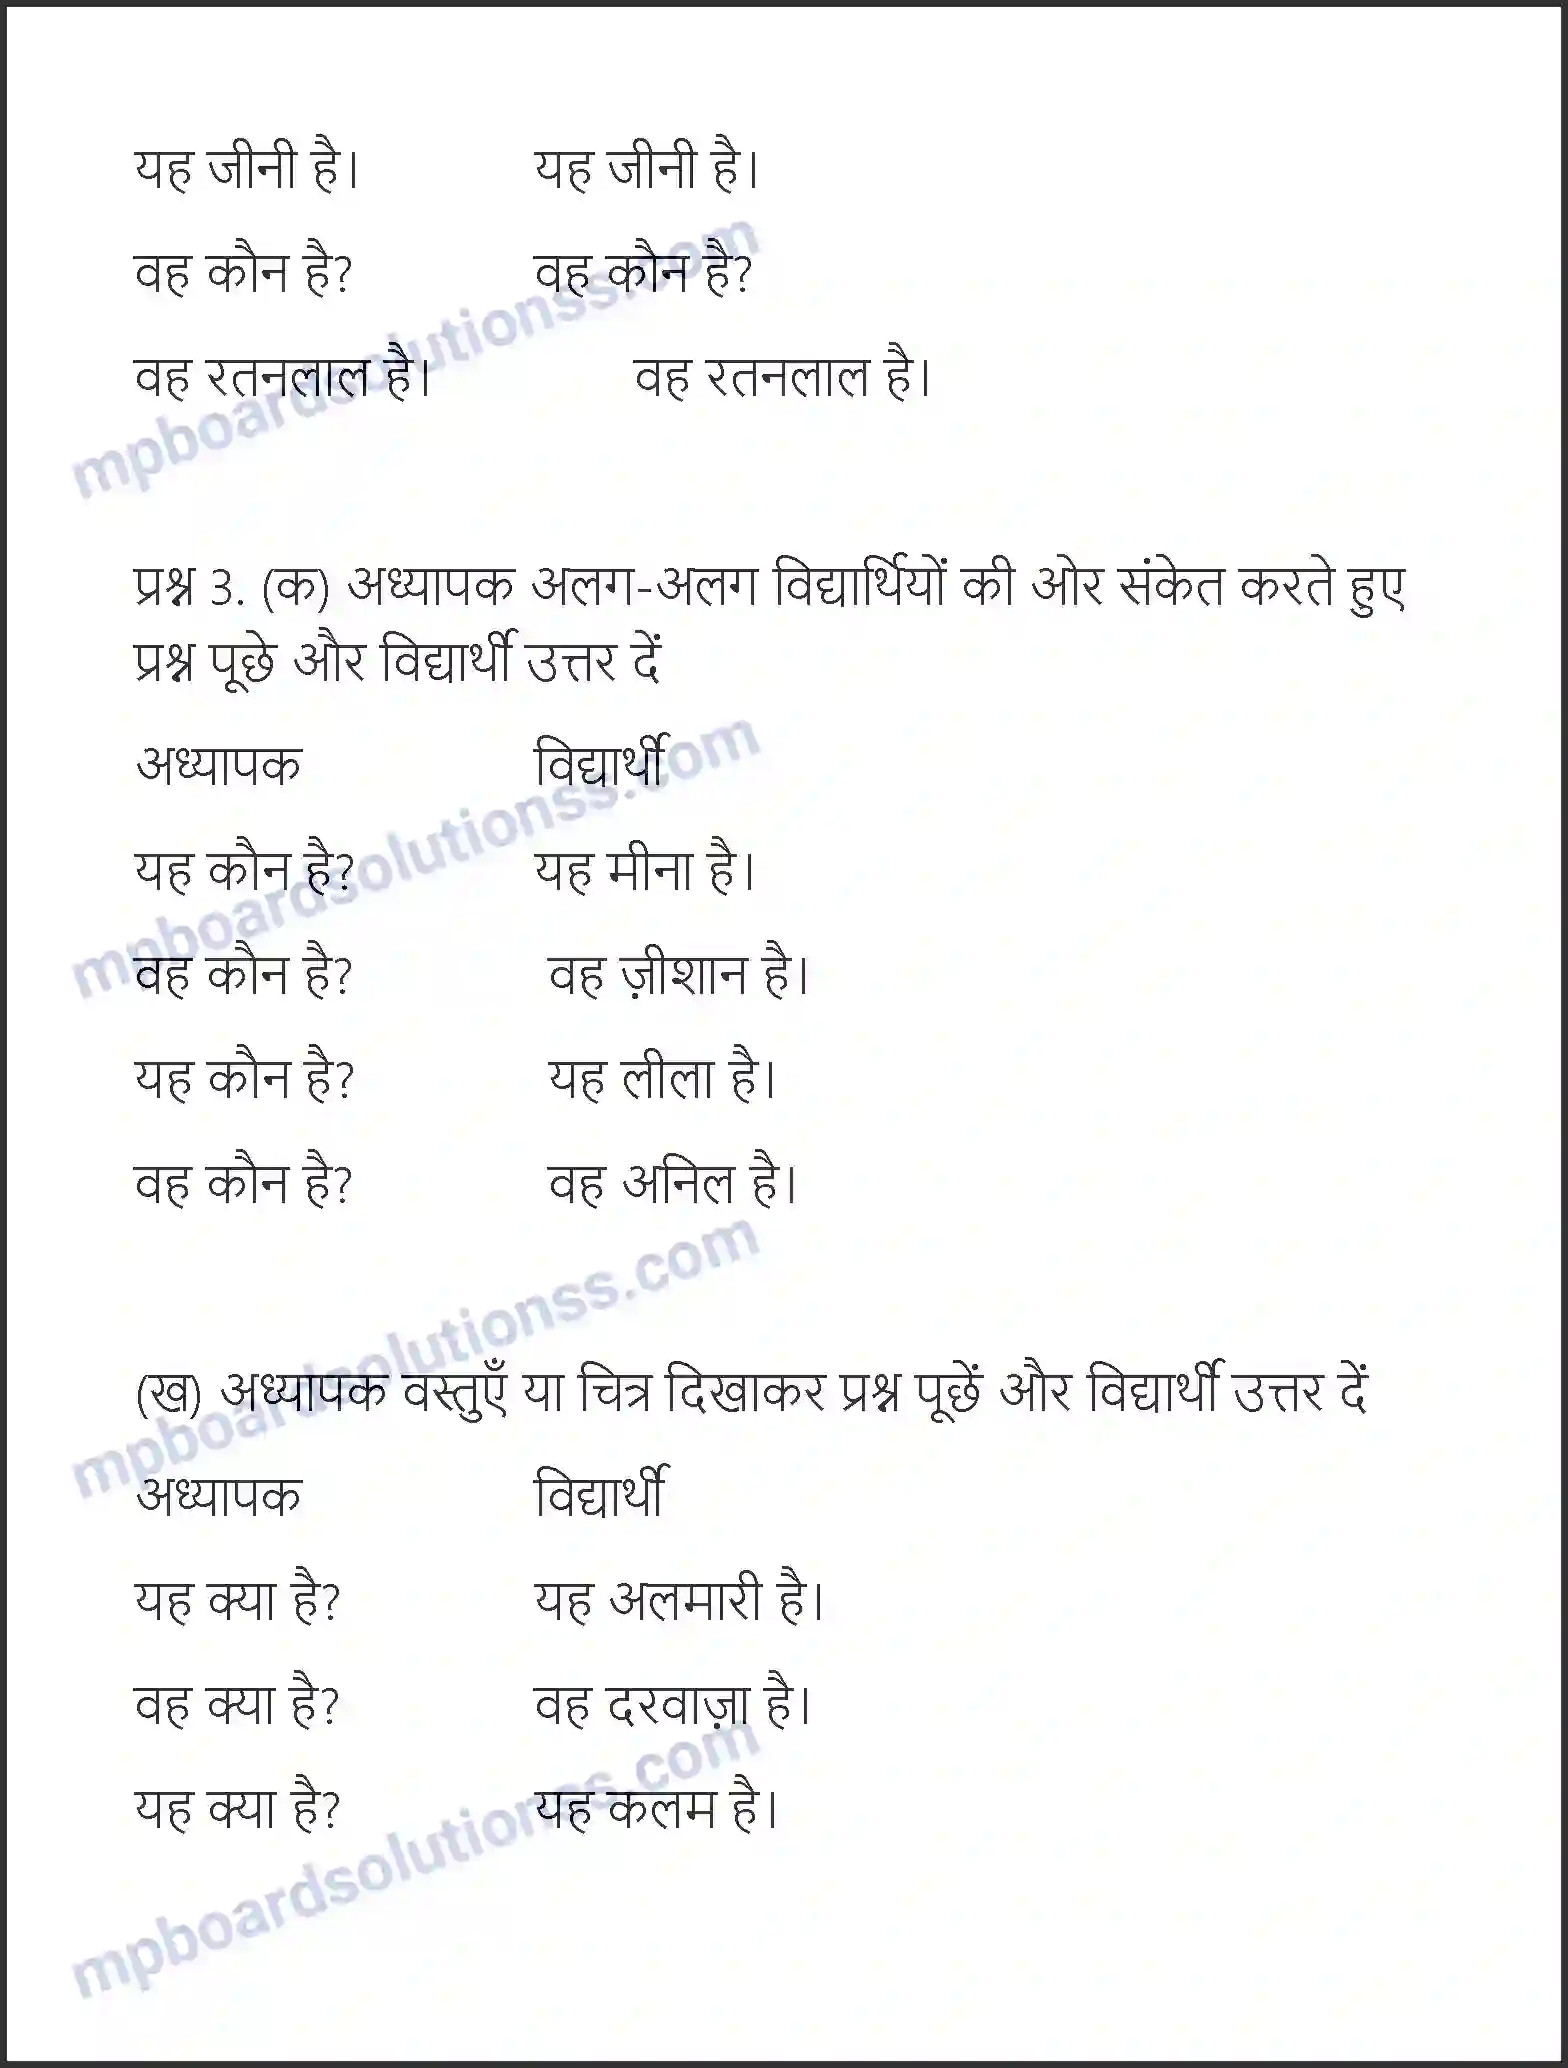 यह जीनी है। यह जीनी है।
वह कौन है? वह कौन है?
वह रतनलाल है। वह रतनलाल है।
mpboardsolutionss.com
प्रश्न 3. (क) अध्यापक अलग-अलग विद्यार्थियों की ओर संकेत करते हुए
प्रश्न पूछे और विद्यार्थी उत्तर दें
अध्यापक विद्यार्थी
यह कौन है? यह मीना है।
mpboardsolutionss.com
वह कौन है? वह ज़ीशान है।
यह कौन है? यह लीला है।
वह कौन है? वह अनिल है।
mpboardsolutionss.com
(ख) अध्यापक वस्तुएँ या चित्र दिखाकर प्रश्न पूछें और विद्यार्थी उत्तर दें
अध्यापक विद्यार्थी
यह क्या है? यह अलमारी है।
वह क्या है? वह दरवाज़ा है।
यह क्या है? यह कलम है।
mpboardsolutionss.com